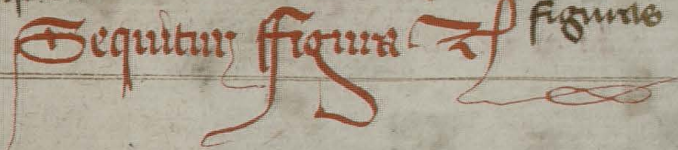 Sequitur ffigura &c figuras